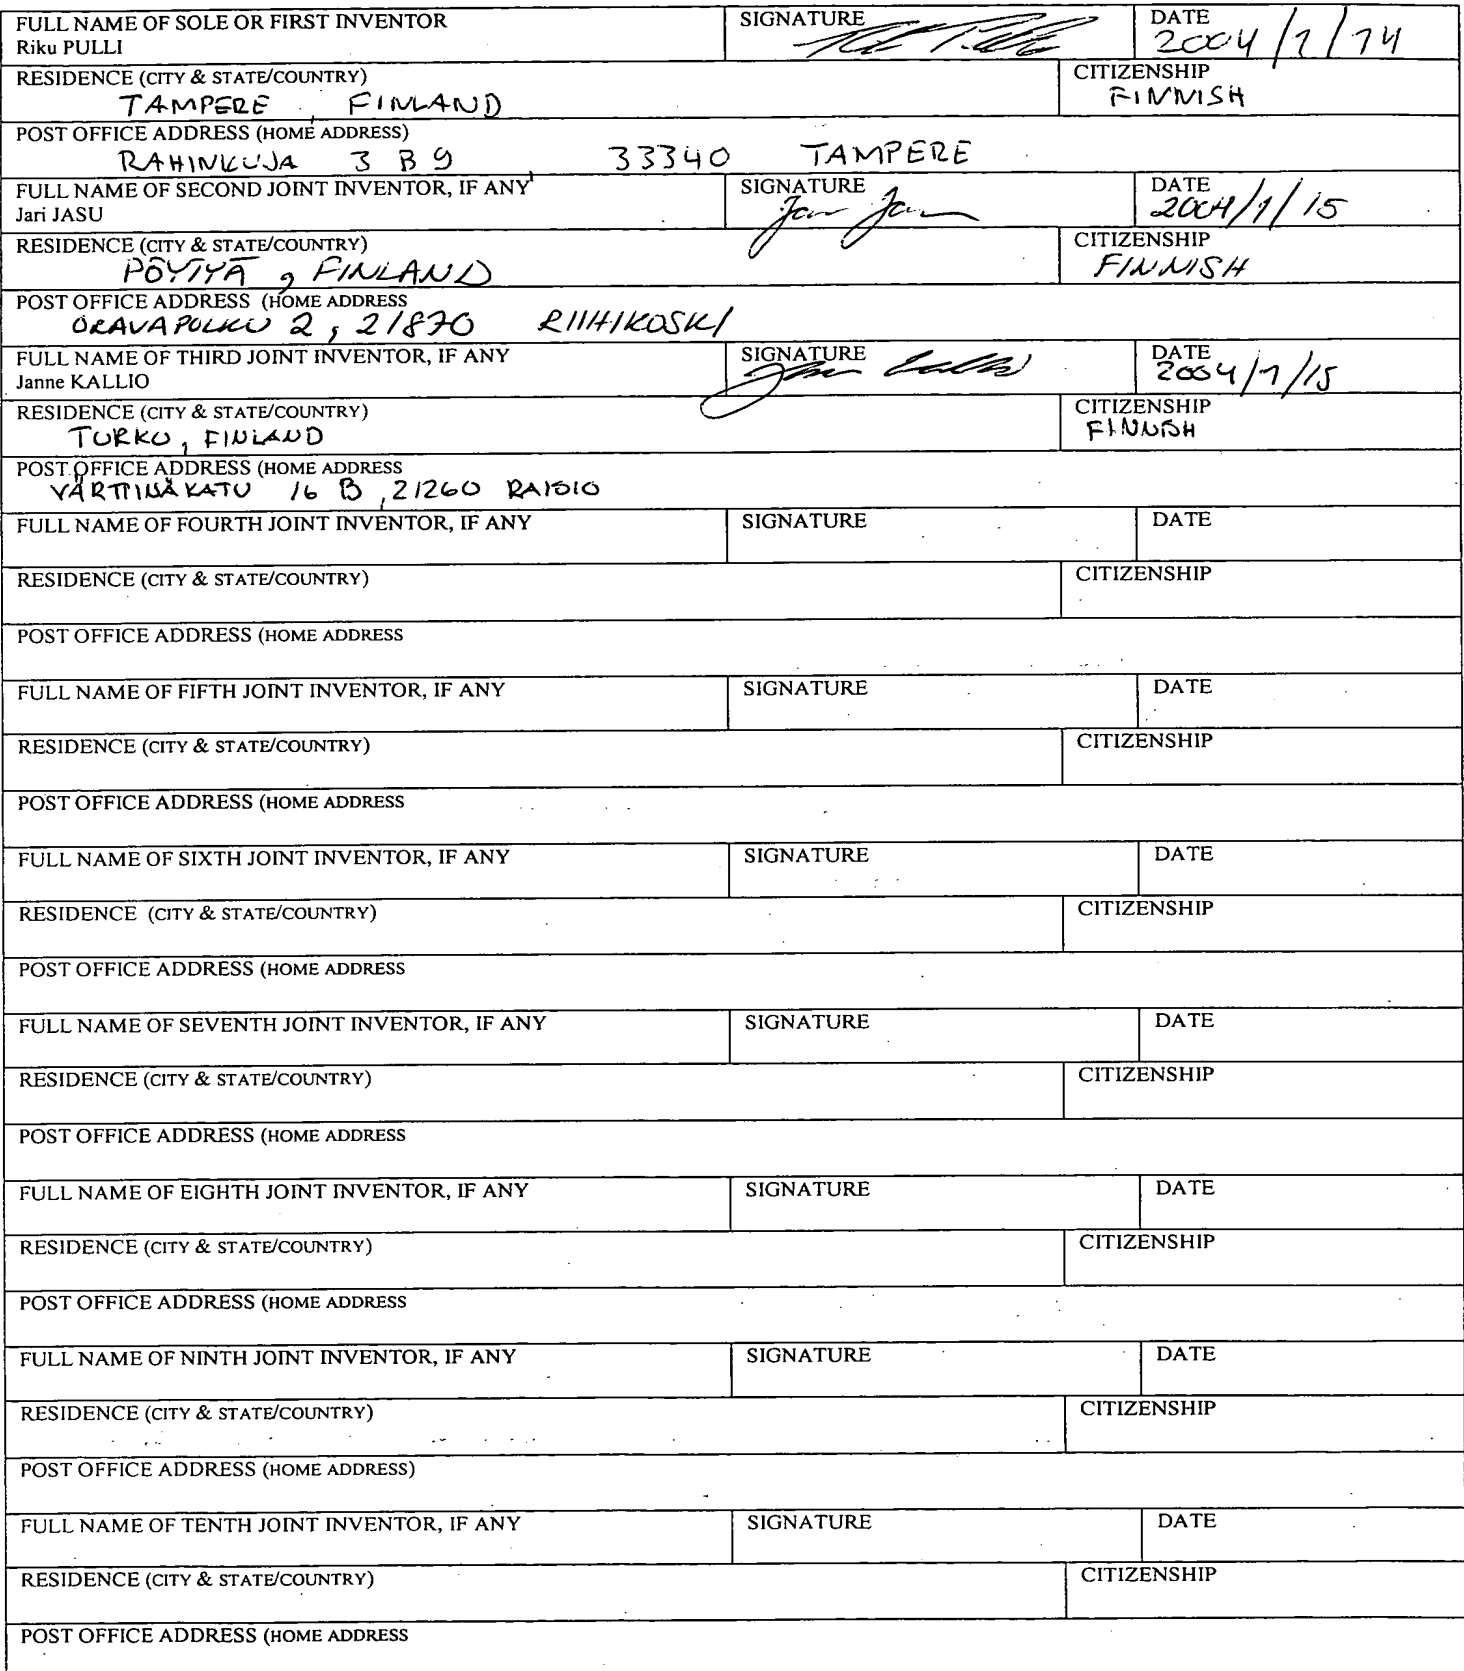 FULL NAME OF SOLE OR FIRST INVENTOR SIGNATURE DATE
Riku PULLI 2004/1/14
RESIDENCE (CITY & STATE/COUNTRY) CITIZENSHIP
TAMPERE, FINLAND FINNISH
POST OFFICE ADDRESS (HOME ADDRESS)
RAHINKUJA 3 B 9 33340 TAMPERE
FULL NAME OF SECOND JOINT INVENTOR, IF ANY SIGNATURE DATE
Jari JASU 2004/1/15
RESIDENCE (CITY & STATE/COUNTRY) CITIZENSHIP
PÖYTYÄ, FINLAND FINNISH
POST OFFICE ADDRESS (HOME ADDRESS
ORAVAPOLKU 2, 21870 RIIHIKOSKI
FULL NAME OF THIRD JOINT INVENTOR, IF ANY SIGNATURE DATE
Janne KALLIO 2004/1/15
RESIDENCE (CITY & STATE/COUNTRY) CITIZENSHIP
TURKU, FINLAND FINNISH
POST OFFICE ADDRESS (HOME ADDRESS
VÄRTTINÄKATU 16 B, 21260 RAISIO
FULL NAME OF FOURTH JOINT INVENTOR, IF ANY SIGNATURE DATE
RESIDENCE (CITY & STATE/COUNTRY) CITIZENSHIP
POST OFFICE ADDRESS (HOME ADDRESS
FULL NAME OF FIFTH JOINT INVENTOR, IF ANY SIGNATURE DATE
RESIDENCE (CITY & STATE/COUNTRY) CITIZENSHIP
POST OFFICE ADDRESS (HOME ADDRESS
FULL NAME OF SIXTH JOINT INVENTOR, IF ANY SIGNATURE DATE
RESIDENCE (CITY & STATE/COUNTRY) CITIZENSHIP
POST OFFICE ADDRESS (HOME ADDRESS
FULL NAME OF SEVENTH JOINT INVENTOR, IF ANY SIGNATURE DATE
RESIDENCE (CITY & STATE/COUNTRY) CITIZENSHIP
POST OFFICE ADDRESS (HOME ADDRESS
FULL NAME OF EIGHTH JOINT INVENTOR, IF ANY SIGNATURE DATE
RESIDENCE (CITY & STATE/COUNTRY) CITIZENSHIP
POST OFFICE ADDRESS (HOME ADDRESS
FULL NAME OF NINTH JOINT INVENTOR, IF ANY SIGNATURE DATE
RESIDENCE (CITY & STATE/COUNTRY) CITIZENSHIP
POST OFFICE ADDRESS (HOME ADDRESS)
FULL NAME OF TENTH JOINT INVENTOR, IF ANY SIGNATURE DATE
RESIDENCE (CITY & STATE/COUNTRY) CITIZENSHIP
POST OFFICE ADDRESS (HOME ADDRESS